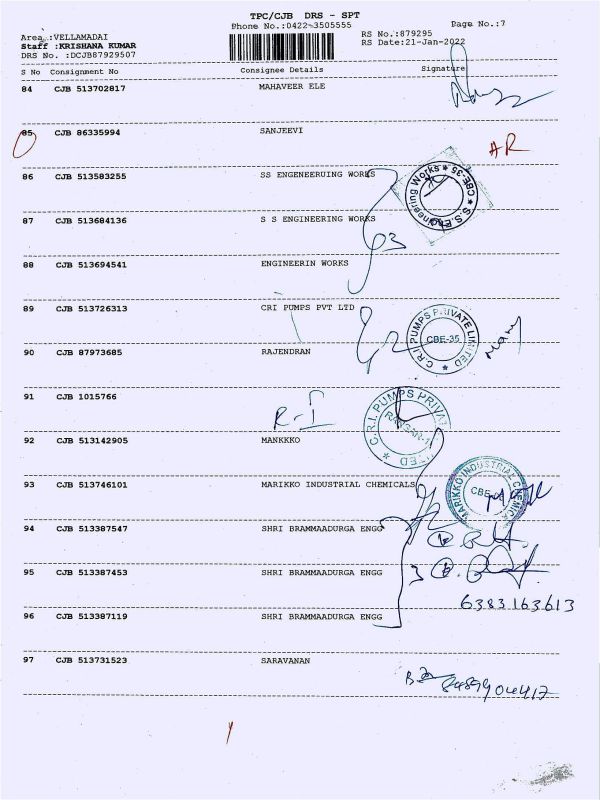 TPC/CJB DRS - SPT
Phone No.:0422-3505555
Page No.:7
Area :VELLAMADAI
RS No.:879295
Staff :KRISHANA KUMAR
RS Date:21-Jan-2022
DRS No. :DCJB87929507
S No Consignment No Consignee Details Signature
84 CJB 513702817 MAHAVEER ELE
85 CJB 86335994 SANJEEVI
AR
86 CJB 513583255 SS ENGENEERUING WORKS
S.S.Engineering Works ★ CBE-35 ★
87 CJB 513684136 S S ENGINEERING WORKS
88 CJB 513694541 ENGINEERIN WORKS
89 CJB 513726313 CRI PUMPS PVT LTD
C.R.I. PUMPS PRIVATE LIMITED ★
CBE-35
90 CJB 87973685 RAJENDRAN
91 CJB 1015766
R-I
C.R.I. PUMPS PRIVATE LIMITED ★
92 CJB 513142905 MANKKKO
93 CJB 513746101 MARIKKO INDUSTRIAL CHEMICALS
MARIKKO INDUSTRIAL CHEMICALS
94 CJB 513387547 SHRI BRAMMAADURGA ENGG
95 CJB 513387453 SHRI BRAMMAADURGA ENGG
3
6383163613
96 CJB 513387119 SHRI BRAMMAADURGA ENGG
97 CJB 513731523 SARAVANAN